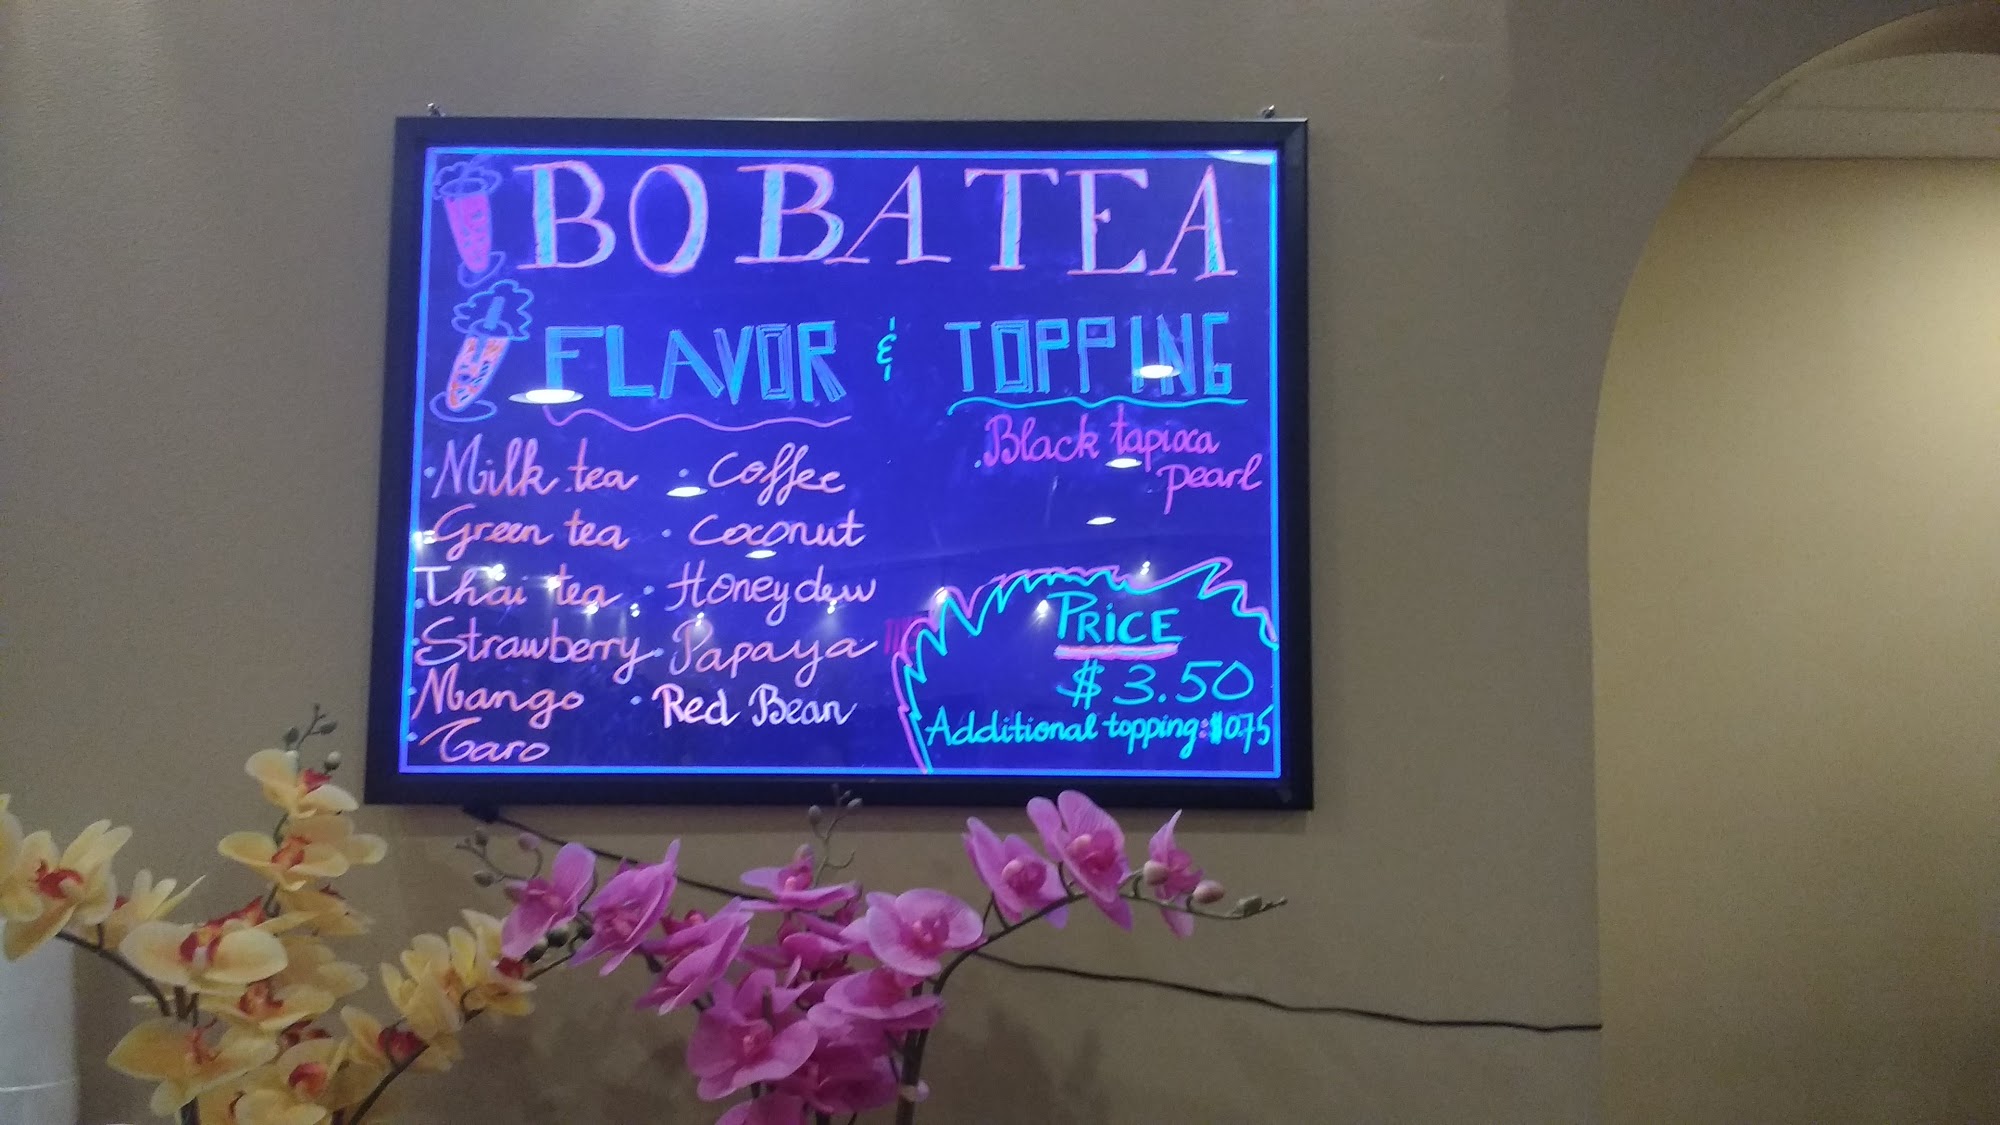 BOBA TEA
FLAVOR & TOPPING
· Milk tea
Green tea
· Thai tea
· Strawberry
· Mango
· Taro
· Coffee
· Coconut
· Honeydew
· Papaya
· Red Bean
· Black tapioca
pearl
PRICE
$3.50
Additional topping: $0.75